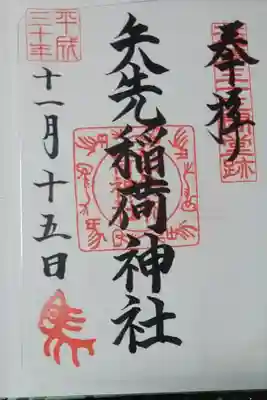 奉拝
矢先稲荷神社
平成
三十年
十一月十五日
馬